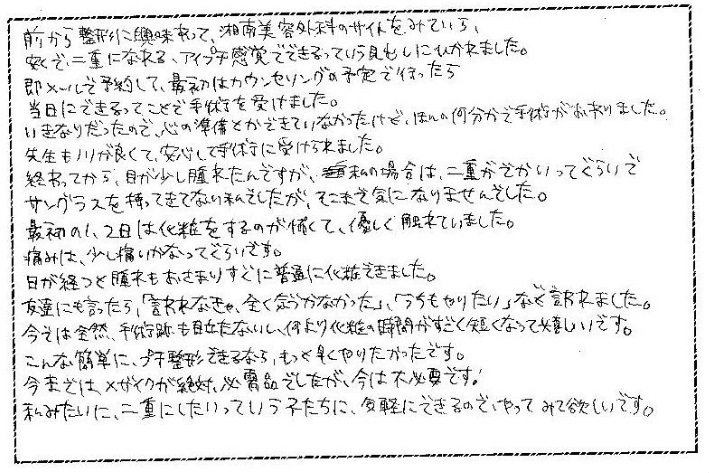 前から整形に興味あって、湘南美容外科のサイトをみていたら、
安くて、二重になれる、アイプチ感覚でできるっていう見出しにひかれました。
即メールで予約して、最初はカウンセリングの予定で行ったら
当日にできるってことで手術を受けました。
いきなりだったので、心の準備とかできていなかったけど、ほんの何分かで手術がおわりました。
先生も人が良くて、安心して手術に受けられました。
終わってから、目が少し腫れたんですが、私の場合は、二重がでかいってぐらいで
サングラスを持ってきてない私でしたが、そこまで気になりませんでした。
最初の1、2日は化粧をするのが怖くて、優しく触れていました。
痛みは、少し痛いかなってぐらいです。
日が経つと腫れもおさまりすぐに普通に化粧できました。
友達にも言ったら、「言われなきゃ、全く気づかなかった」、「うちもやりたい」など言われました。
今では全然、手術跡も目立たないし、何より化粧の時間がすごく短くなって嬉しいです。
こんな簡単に、プチ整形できるなら、もっと早くやりたかったです。
今までは、メザイクが絶対、必需品でしたが、今は不必要です!
私みたいに、二重にしたいっていう子たちに、気軽にできるので、やってみて欲しいです。